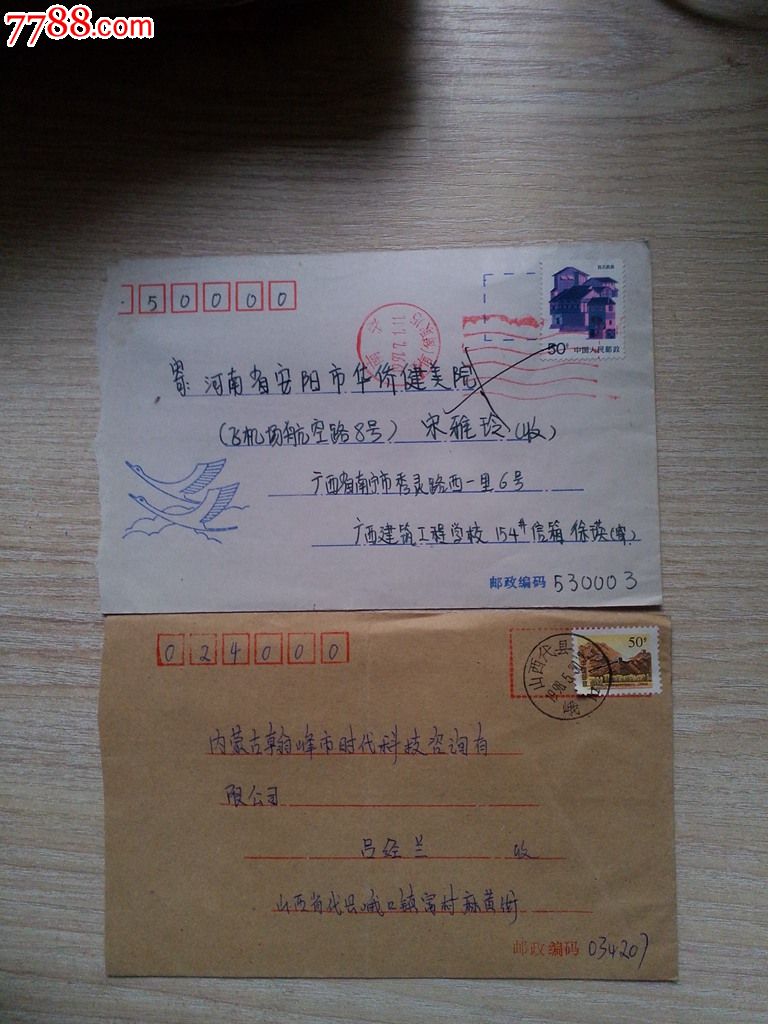 7788.com
50000
50分 中国人民邮政
寄: 河南省安阳市华侨健美院
(飞机场航空路8号) 宋雅玲(收)
广西省南宁市秀灵路西一里6号
广西建筑工程学校 154# 信箱 徐瑛(寄)
邮政编码 530003
024000
50分
山西 代县
1998.5
峨口
内蒙古翰峰市时代科技咨询有
限公司
吕经兰 收
山西省代县峨口镇富村麻黄街
邮政编码 034207